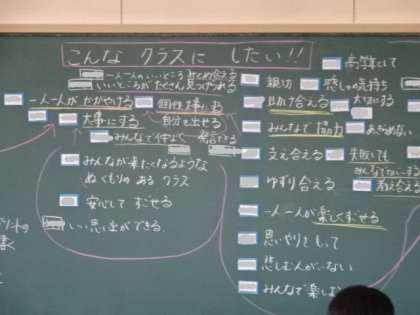 こんな クラスに したい!!
一人一人のいいところ みとめ合える
いいところが たくさん見つけられる
一人一人が かがやける
個性 大事にする
大事にする
自分を出せる
みんなで仲よく
発言できる
みんなが来たくなるような
ぬくもりの ある クラス
安心して すごせる
いい思い出ができる。
高学年として
親切
感しゃの気持ち
助け合える
大切にする
みんなで 協力
あきらめない
支え合える
失敗しても
ゆずり合える
教え合える
一人一人が 楽しくすごせる
思いやりをもって
悲しむ人がいない
みんなで楽しむ